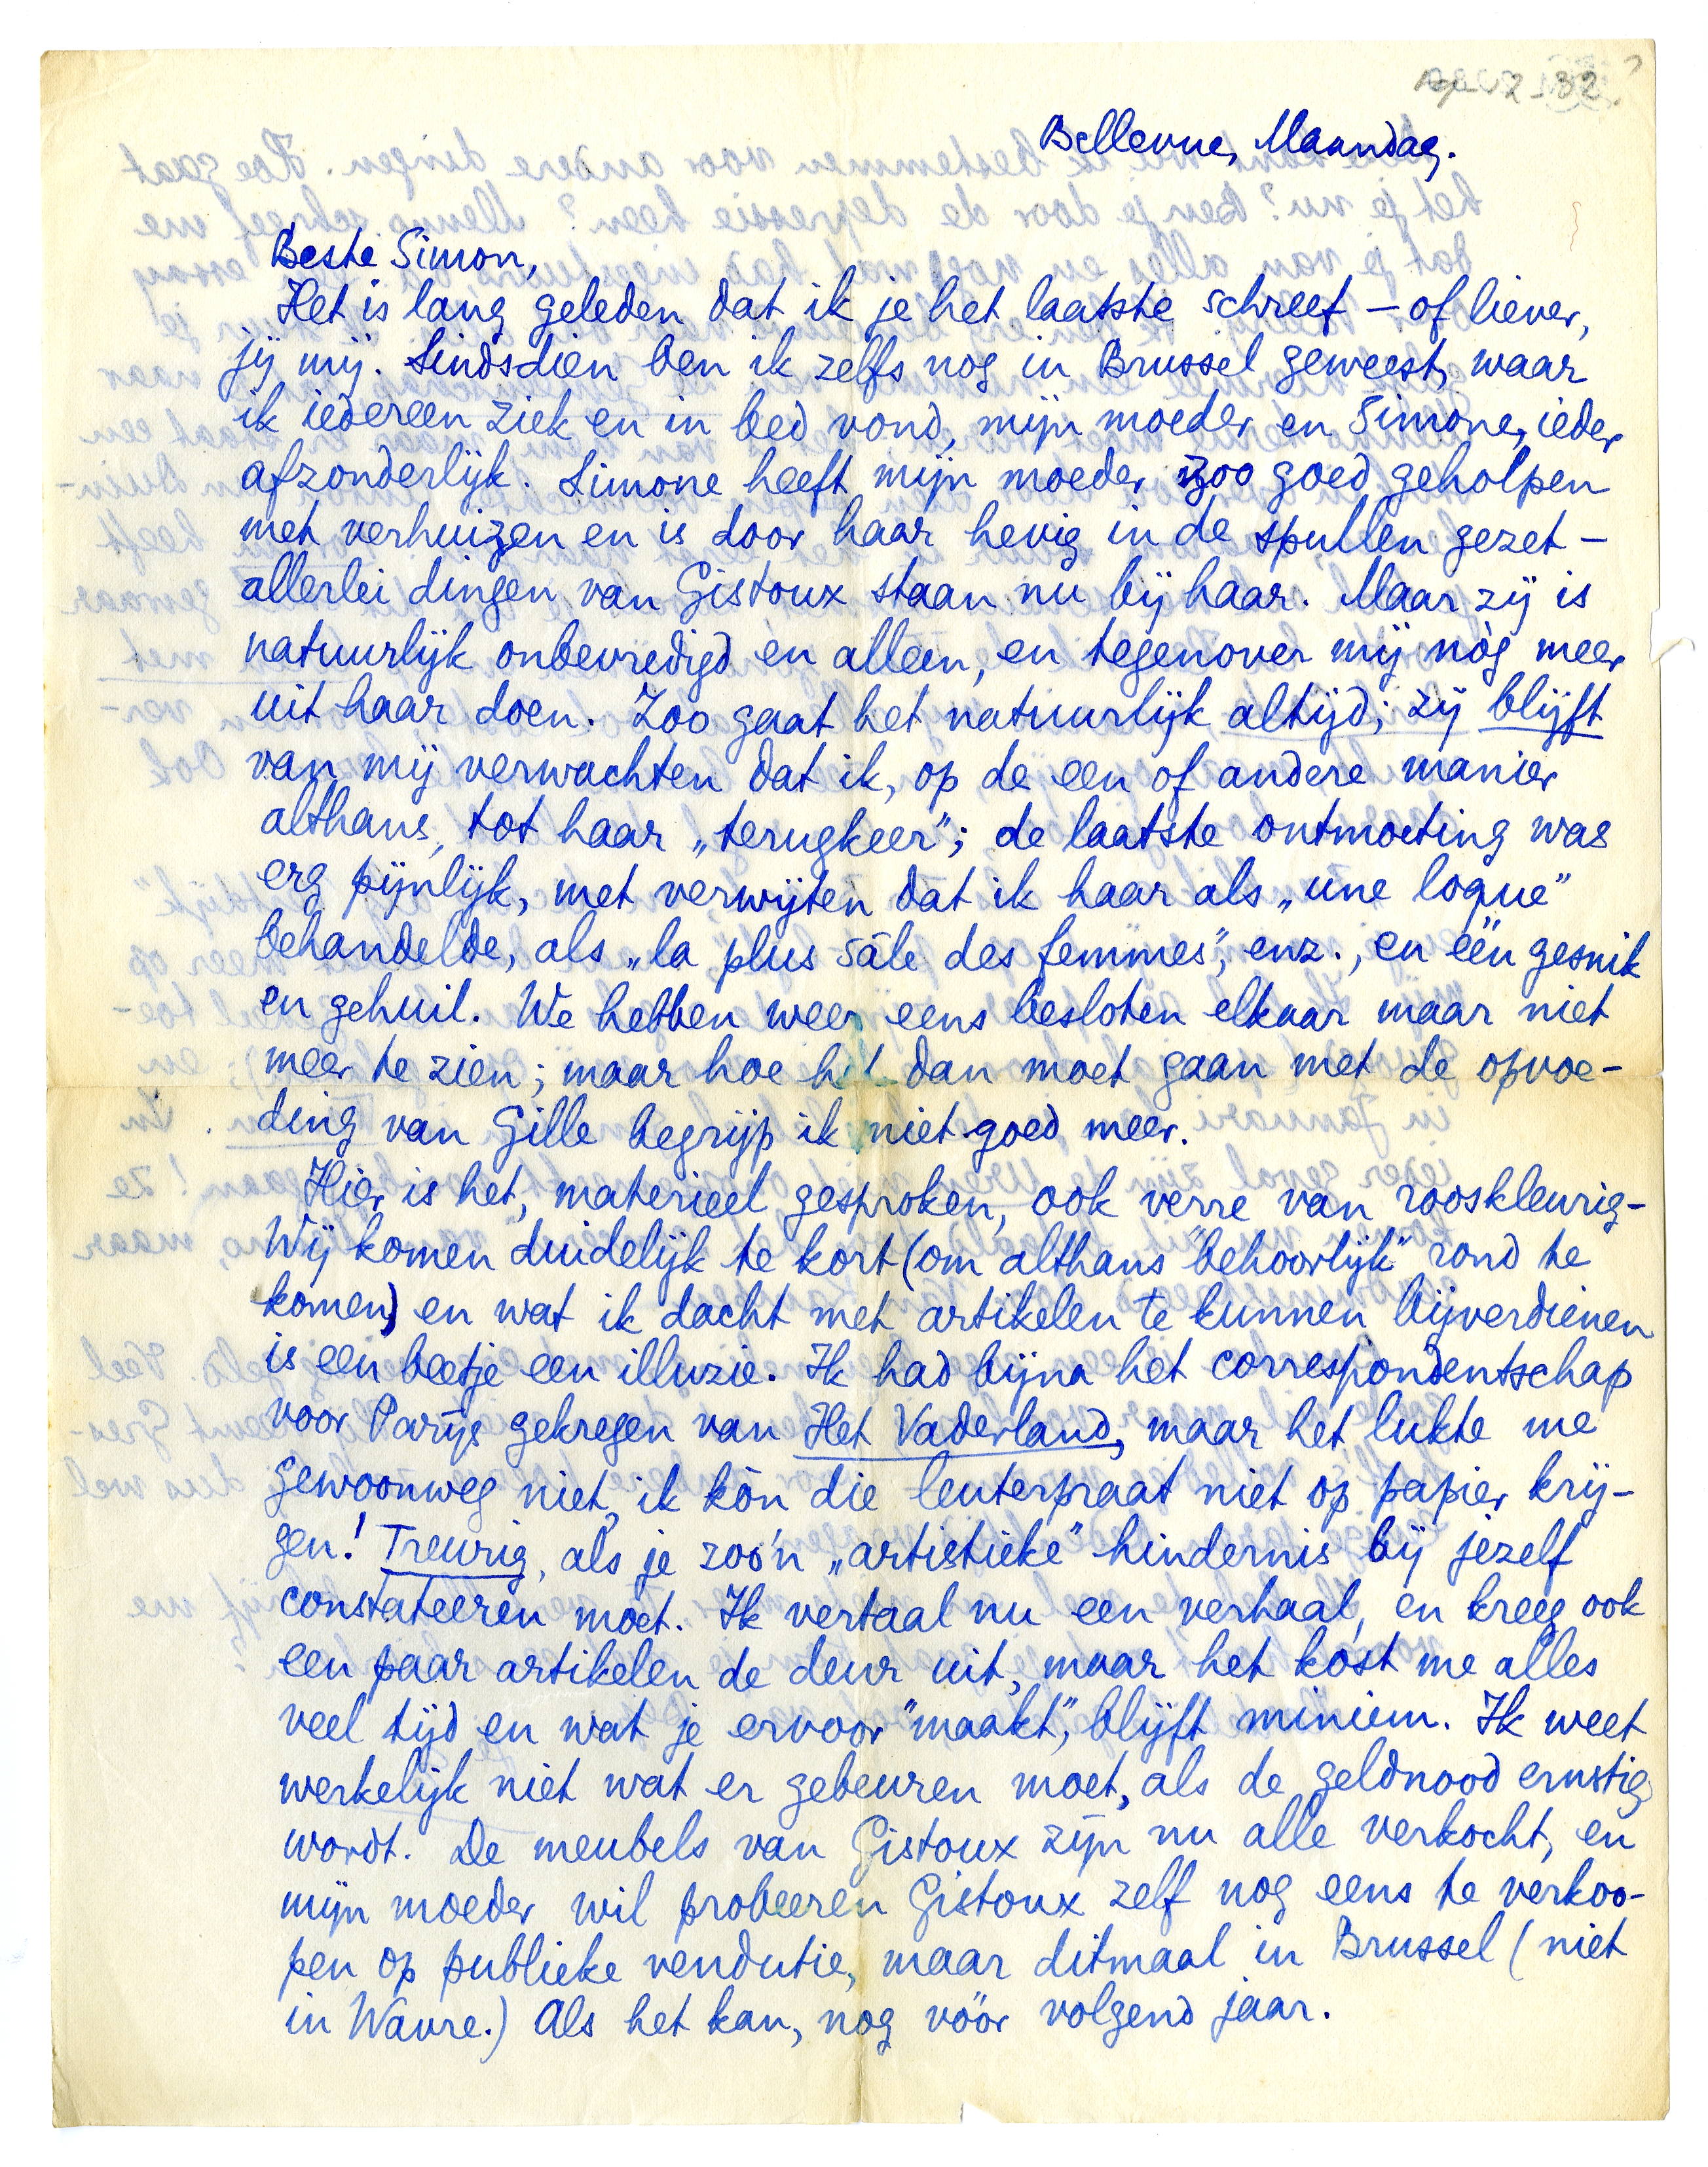 Bellevue, Maandag.
Beste Simon,
Het is lang geleden dat ik je het laatste schreef – of liever,
jij mij. Sindsdien ben ik zelfs nog in Brussel geweest, waar
ik iedereen ziek en in bed vond, mijn moeder en Simone, ieder
afzonderlijk. Simone heeft mijn moeder zoo goed geholpen
met verhuizen en is door haar hevig in de spullen gezet –
allerlei dingen van Gistoux staan nu bij haar. Maar zij is
natuurlijk onbevredigd en alleen, en tegenover mij nòg meer
uit haar doen. Zoo gaat het natuurlijk altijd; zij blijft
van mij verwachten dat ik, op de een of andere manier
althans, tot haar „terugkeer”; de laatste ontmoeting was
erg pijnlijk, met verwijten dat ik haar als „une loque”
behandelde, als „la plus sâle des femmes”, enz., en één gesnik
en gehuil. We hebben weer eens besloten elkaar maar niet
meer te zien; maar hoe het dan moet gaan met de opvoe-
ding van Gille begrijp ik niet goed meer.
Hier is het, materieel gesproken, ook verre van rooskleurig-
Wij komen duidelijk te kort (om althans "behoorlijk" rond te
komen) en wat ik dacht met artikelen te kunnen bijverdienen
is een beetje een illuzie. Ik had bijna het correspondentschap
voor Parijs gekregen van Het Vaderland, maar het lukte me
gewoonweg niet, ik kòn die leuterpraat niet op papier krij-
gen! Treurig, als je zoo'n „artistieke” hindernis bij jezelf
constateeren moet. Ik vertaal nu een verhaal, en kreeg ook
een paar artikelen de deur uit, maar het kost me alles
veel tijd en wat je ervoor "maakt", blijft miniem. Ik weet
werkelijk niet wat er gebeuren moet, als de geldnood ernstig
wordt. De meubels van Gistoux zijn nu alle verkocht, en
mijn moeder wil probeeren Gistoux zelf nog eens te verkoo-
pen op publieke vendutie, maar ditmaal in Brussel (niet
in Wavre.) Als het kan, nog vóór volgend jaar.